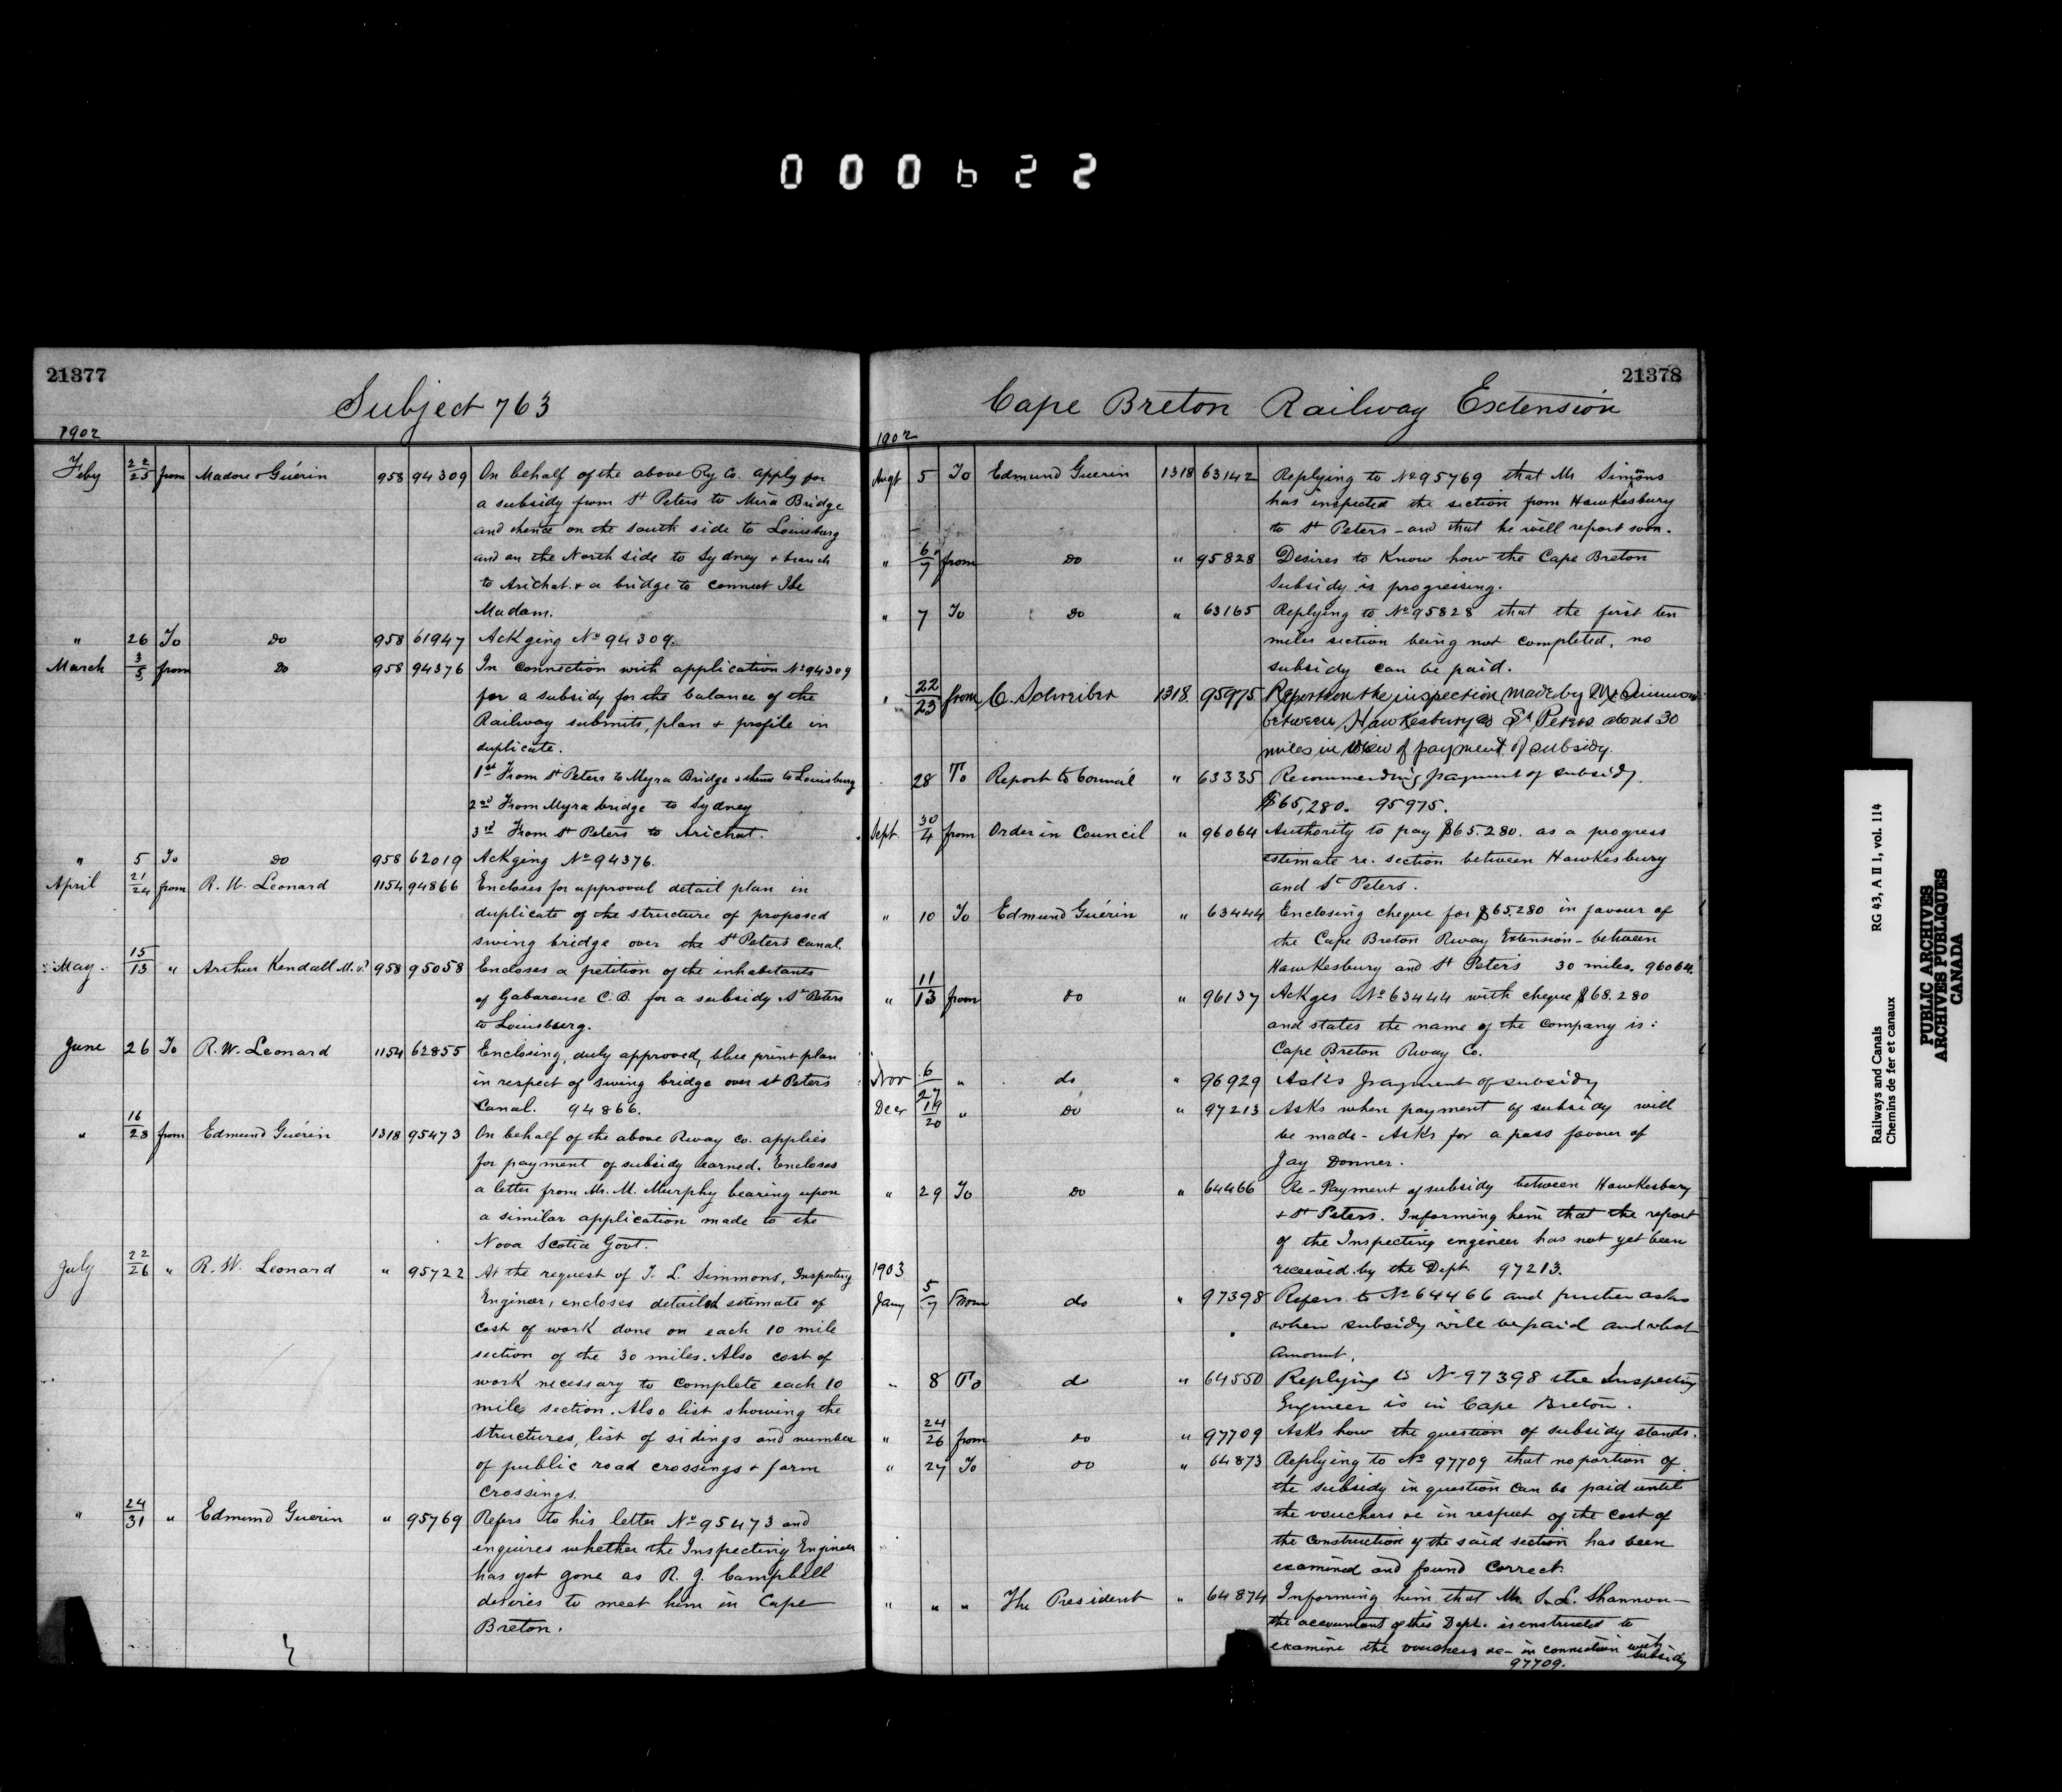 000622
21377
Subject 763
1902
Feby 22/25 from Madore & Guérin 958 94309 On behalf of the above Ry Co. apply for
a subsidy from St Peters to Mira Bridge
and thence on the south side to Louisburg
and on the North side to Sydney & branch
to Arichat & a bridge to connect Ile
Madam.
" 26 To do 958 61947 Ackging No 94309.
March 3/5 from do 958 94376 In connection with application No 94309
for a subsidy for the balance of the
Railway submits, plan & profile in
duplicate.
1st From St Peters to Myra Bridge & thence to Louisburg
2nd From Myra bridge to Sydney
3rd From St Peters to Arichat.
" 5 To do 958 62019 Ackging No 94376.
April 21/24 from R. W. Leonard 1154 94866 Encloses for approval detail plan in
duplicate of the structure of proposed
swing bridge over the St Peters Canal.
May. 15/13 " Arthur Kendall M.P. 958 95058 Encloses a petition of the inhabitants
of Gabarouse C.B. for a subsidy St Peters
to Louisburg.
June 26 To R. W. Leonard 1154 62855 Enclosing, duly approved, blue print plan
in respect of swing bridge over St Peters
Canal. 94866.
" 16/28 from Edmund Guérin 1318 95473 On behalf of the above Rway Co. applies
for payment of subsidy earned. Encloses
a letter from Mr. M. Murphy bearing upon
a similar application made to the
Nova Scotia Govt.
July 22/26 " R. W. Leonard " 95722 At the request of T. L. Simmons, Inspecting
Engineer, encloses detailed estimate of
cost of work done on each 10 mile
section of the 30 miles. Also cost of
work necessary to complete each 10
mile section. Also list showing the
structures, list of sidings and number
of public road crossings & farm
crossings.
" 24/31 " Edmund Guerin " 95769 Refers to his letter No 95473 and
enquires whether the Inspecting Engineer
has yet gone as R. J. Campbell
desires to meet him in Cape
Breton.
21378
Cape Breton Railway Extension
1902
Augt 5 To Edmund Guerin 1318 63142 Replying to No 95769 that Mr Simmons
has inspected the section from Hawkesbury
to St Peters - and that he will report soon.
" 6/7 from do " 95828 Desires to know how the Cape Breton
Subsidy is progressing.
" 7 To do " 63165 Replying to No 95828 that the first ten
miles section being not completed, no
subsidy can be paid.
" 22/23 from C. Schreiber 1318. 95975. Reports on the inspection made by Mr Simmons
between Hawkesbury & St Peters about 30
miles in view of payment of subsidy.
28 To Report to Council " 63335 Recommending payment of subsidy.
$65,280. 95975.
Sept. 30/4 from Order in Council " 96064 Authority to pay $65.280. as a progress
estimate re. section between Hawkesbury
and St Peters.
" 10 To Edmund Guérin " 63444 Enclosing cheque for $65.280 in favour of
the Cape Breton Rway Extension - between
Hawkesbury and St Peters 30 miles. 96064.
" 11/13 from do " 96137 Ackges No 63444 with cheque $68.280
and states the name of the company is:
Cape Breton Rway Co.
Nov 6/27 " do " 96929 Asks payment of subsidy
Decr 19/20 " do " 97213 Asks when payment of subsidy will
be made - Asks for a pass favour of
Jay Donner.
" 29 To do " 64466 Re - Payment of subsidy between Hawkesbury
& St Peters. Informing him that the report
of the Inspecting engineer has not yet been
received by the Dept. 97213.
1903
Jany 5/7 From do " 97398 Refers to No 64466 and further asks
when subsidy will be paid and what
amount.
" 8 To do " 64550 Replying to No 97398 the Inspecting
Engineer is in Cape Breton.
" 24/26 from do " 97709 Asks how the question of subsidy stands.
" 27 To do " 64873 Replying to No 97709 that no portion of
the subsidy in question can be paid until
the vouchers &c in respect of the cost of
the construction of the said section has been
examined and found correct.
" " " The President " 64874 Informing him that Mr. S. L. Shannon -
the accountant of this Dept. is enstructed to
examine the vouchers &c - in connection with
subsidy
97709.
Railways and Canals RG 43, A II 1, vol. 114
Chemins de fer et canaux
PUBLIC ARCHIVES
ARCHIVES PUBLIQUES
CANADA